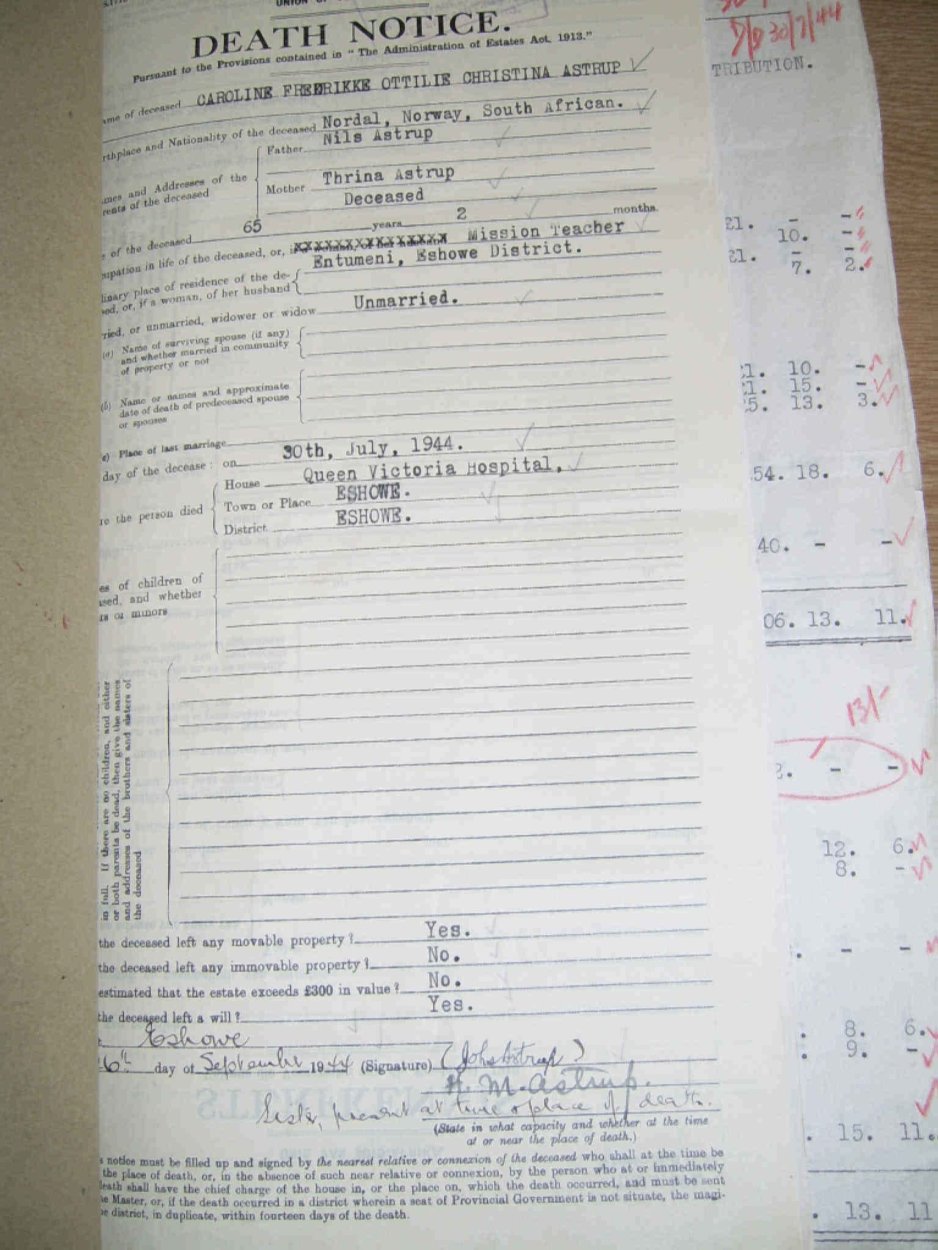 DEATH NOTICE.
Pursuant to the Provisions contained in "The Administration of Estates Act, 1913."
ame of deceased CAROLINE FREDRIKKE OTTILIE CHRISTINA ASTRUP
rthplace and Nationality of the deceased Nordal, Norway, South African.
mes and Addresses of the
rents of the deceased
Father Nils Astrup
Mother Thrina Astrup
Deceased
of the deceased 65 years 2 months
upation in life of the deceased, or, Mission Teacher
linary place of residence of the de-
sed, or, if a woman, of her husband
Entumeni, Eshowe District.
ried, or unmarried, widower or widow Unmarried.
(a) Name of surviving spouse (if any)
and whether married in community
of property or not
(b) Name or names and approximate
date of death of predeceased spouse
or spouses
c) Place of last marriage
day of the decease: on 30th, July, 1944.
re the person died
House Queen Victoria Hospital,
Town or Place ESHOWE.
District ESHOWE.
es of children of
sed, and whether
rs or minors
in full. If there are no children, and either
or both parents be dead, then give the names
and addresses of the brothers and sisters of
the deceased
the deceased left any movable property? Yes.
the deceased left any immovable property? No.
estimated that the estate exceeds £300 in value? No.
the deceased left a will? Yes.
Eshowe
6th day of September 1944 (Signature) (Joh Astrup)
H. M. Astrup.
Sister, present at time & place of death.
(State in what capacity and whether at the time
at or near the place of death.)
s notice must be filled up and signed by the nearest relative or connexion of the deceased who shall at the time be
the place of death, or, in the absence of such near relative or connexion, by the person who at or immediately
death shall have the chief charge of the house in, or the place on, which the death occurred, and must be sent
he Master, or, if the death occurred in a district wherein a seat of Provincial Government is not situate, the magi-
he district, in duplicate, within fourteen days of the death.
30/7/44
TRIBUTION.
21. - -
10. -
21. 7. 2.
1. 10. -
1. 15. -
5. 13. 3.
54. 18. 6.
40. - -
06. 13. 11.
13/-
- -
12. 6.
8. -
. - -
. 8. 6.
. 9. -
. 15. 11.
. 13. 11